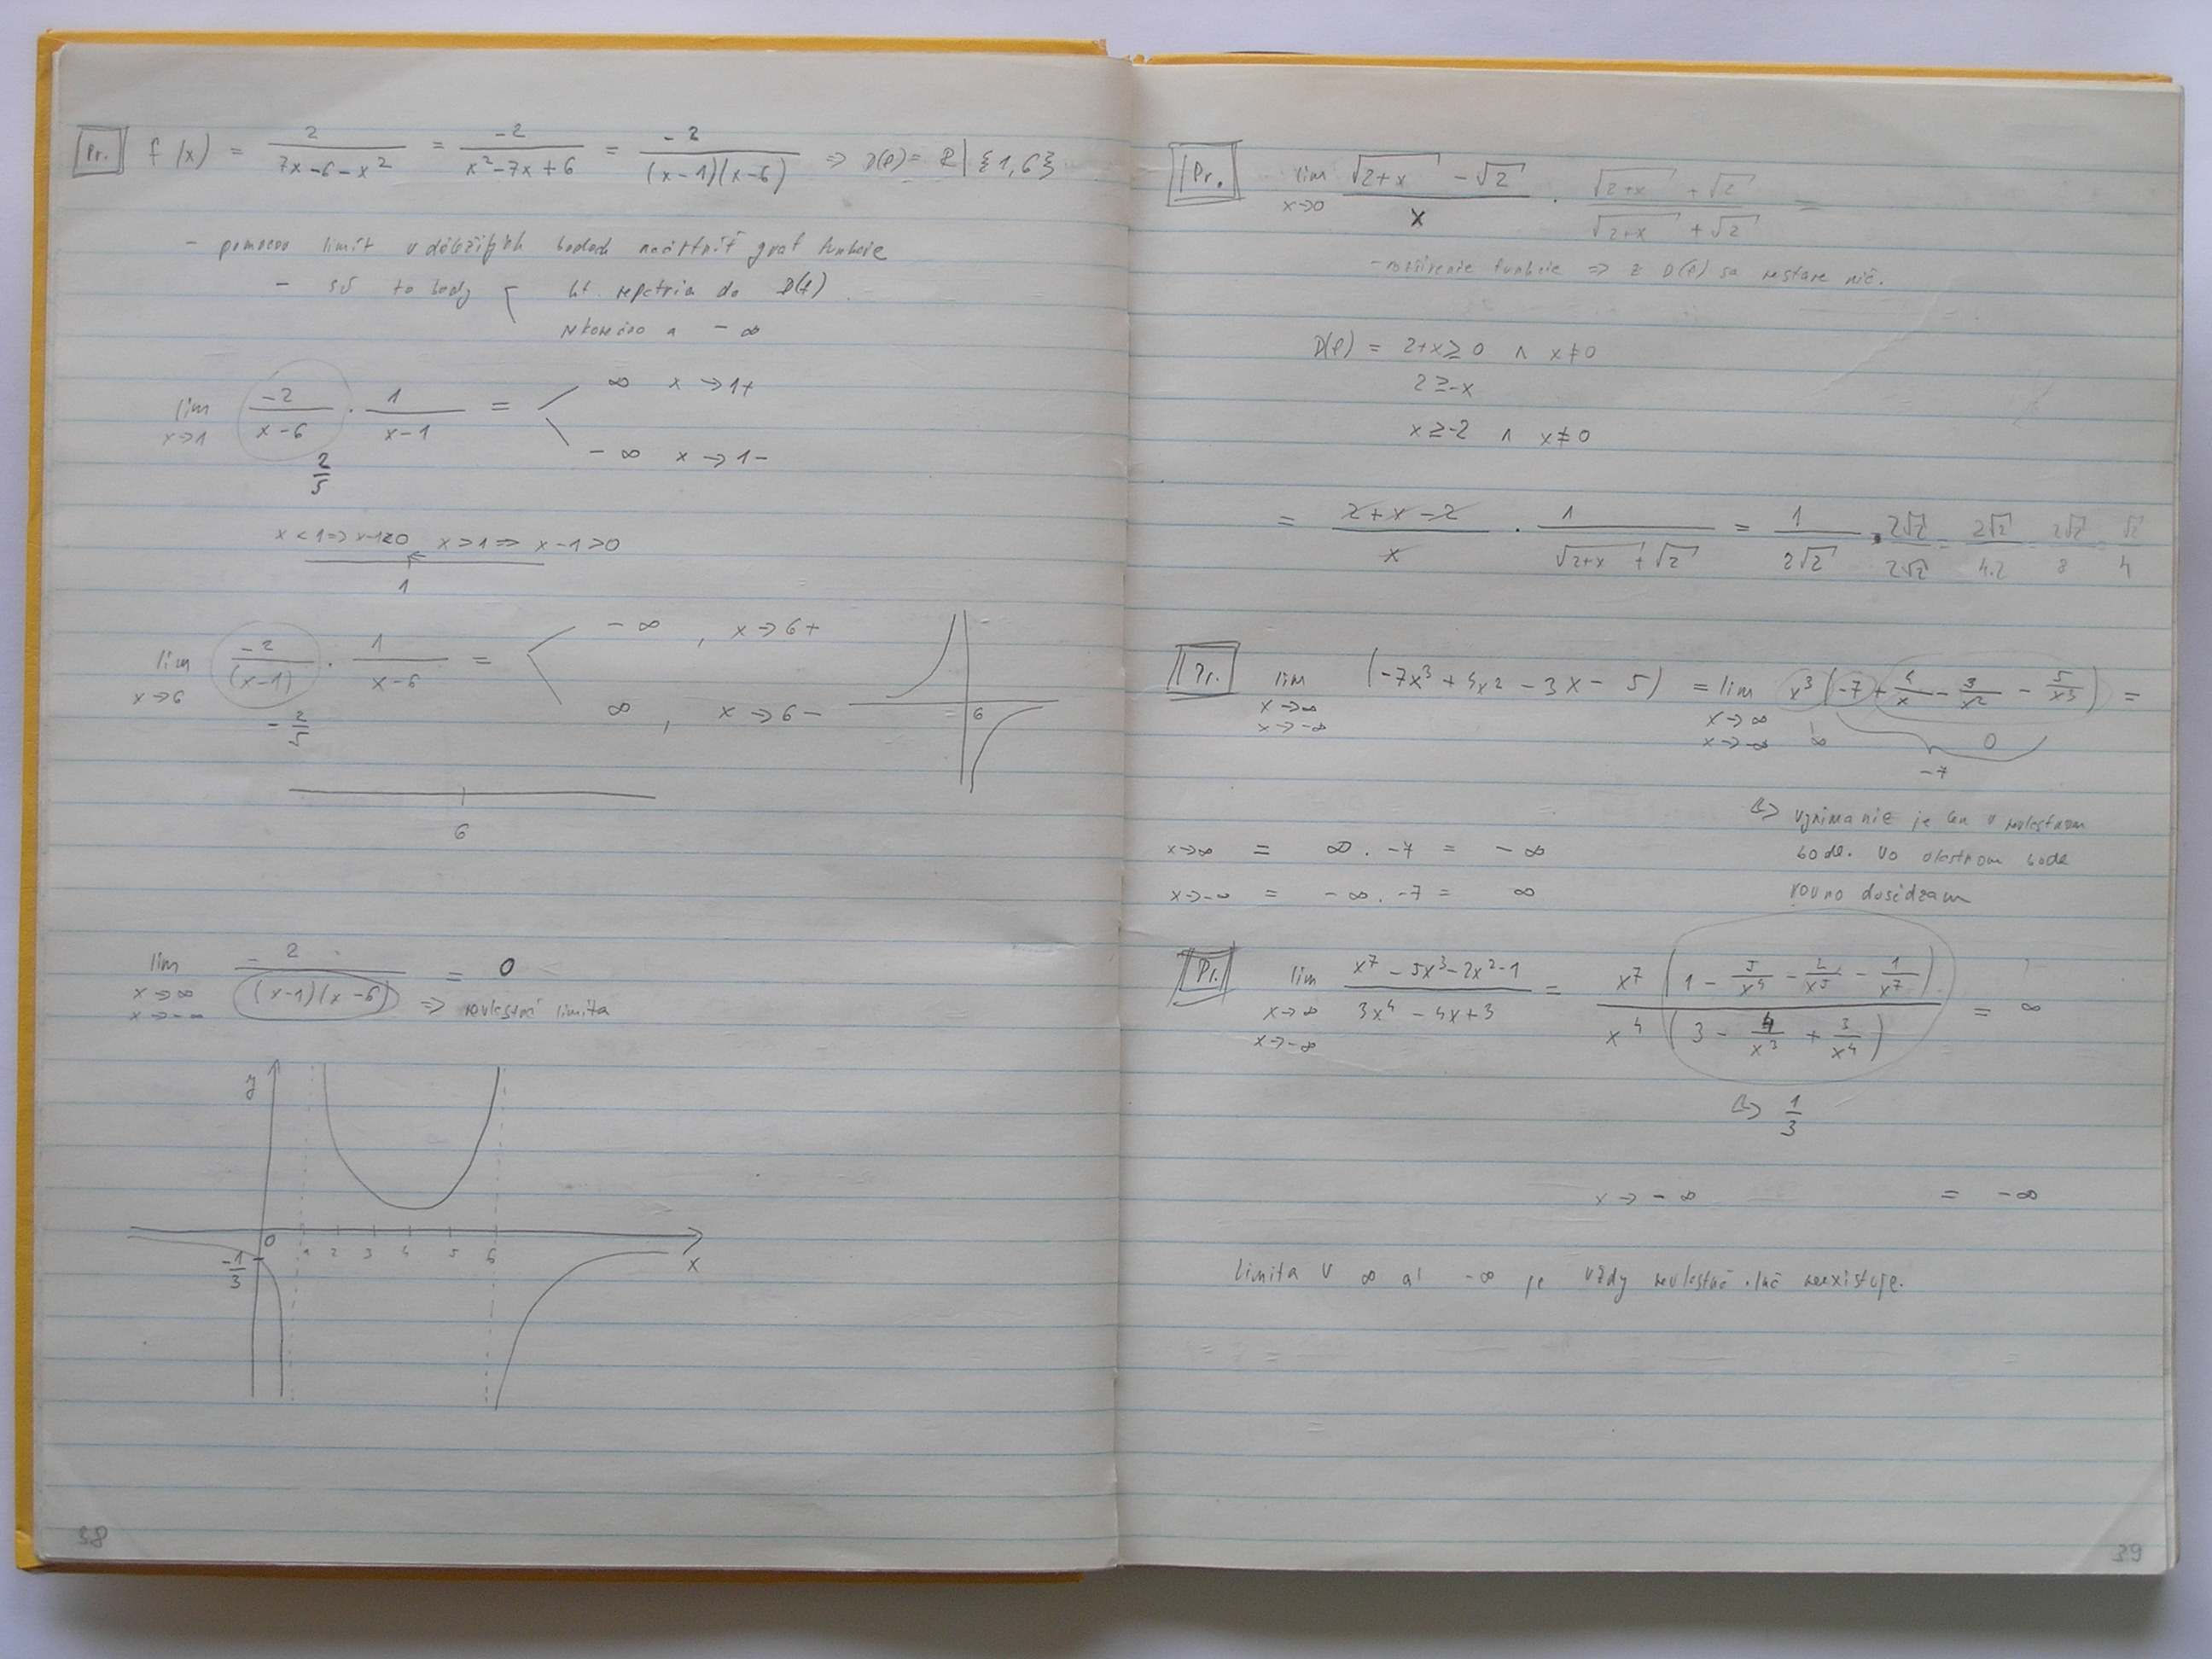 Pr. f(x) = 2/(7x-6-x²) = -2/(x²-7x+6) = -2/((x-1)(x-6)) => D(f) = R | {1,6}
- pomocou limit v dôležitých bodoch načrtnúť graf funkcie
- sú to body kt. nepatria do D(f)
nekonečno a -∞
lim x->1 -2/(x-6) · 1/(x-1) = ∞ x->1+
-∞ x->1-
2/5
x<1=>x-1<0 x>1=> x-1>0
1
lim x->6 -2/(x-1) · 1/(x-6) = -∞, x->6+
∞, x->6-
-2/5
6
6
lim x->∞ x->-∞ -2/((x-1)(x-6)) = 0
=> nevlastná limita
y
0 1 2 3 4 5 6 x
-1/3
38
Pr. lim x->0 (√(2+x) - √2)/x · (√(2+x) + √2)/(√(2+x) + √2) =
- rozšírenie funkcie => z D(f) sa nestane nič.
D(f) = 2+x≥0 ∧ x≠0
2≥-x
x≥-2 ∧ x≠0
= (2+x-2)/x · 1/(√(2+x) + √2) = 1/(2√2) · 2√2/2√2 = 2√2/4.2 = 2√2/8 = √2/4
Pr. lim x->∞ x->-∞ (-7x³+4x²-3x-5) = lim x->∞ x->-∞ x³(-7+4/x-3/x²-5/x³) =
∞ 0
-7
vynímanie je len v nevlastnom
bode. Vo vlastnom bode
rovno dosádzam
x->∞ = ∞.-7 = -∞
x->-∞ = -∞.-7 = ∞
Pr. lim x->∞ x->-∞ (x⁷-5x³-2x²-1)/(3x⁴-4x+3) = x⁷(1-5/x⁴-2/x⁵-1/x⁷)/x⁴(3-4/x³+3/x⁴) = ∞
1/3
x->-∞ = -∞
Limita v ∞ al -∞ je vždy nevlastná. Inč neexistuje.
39